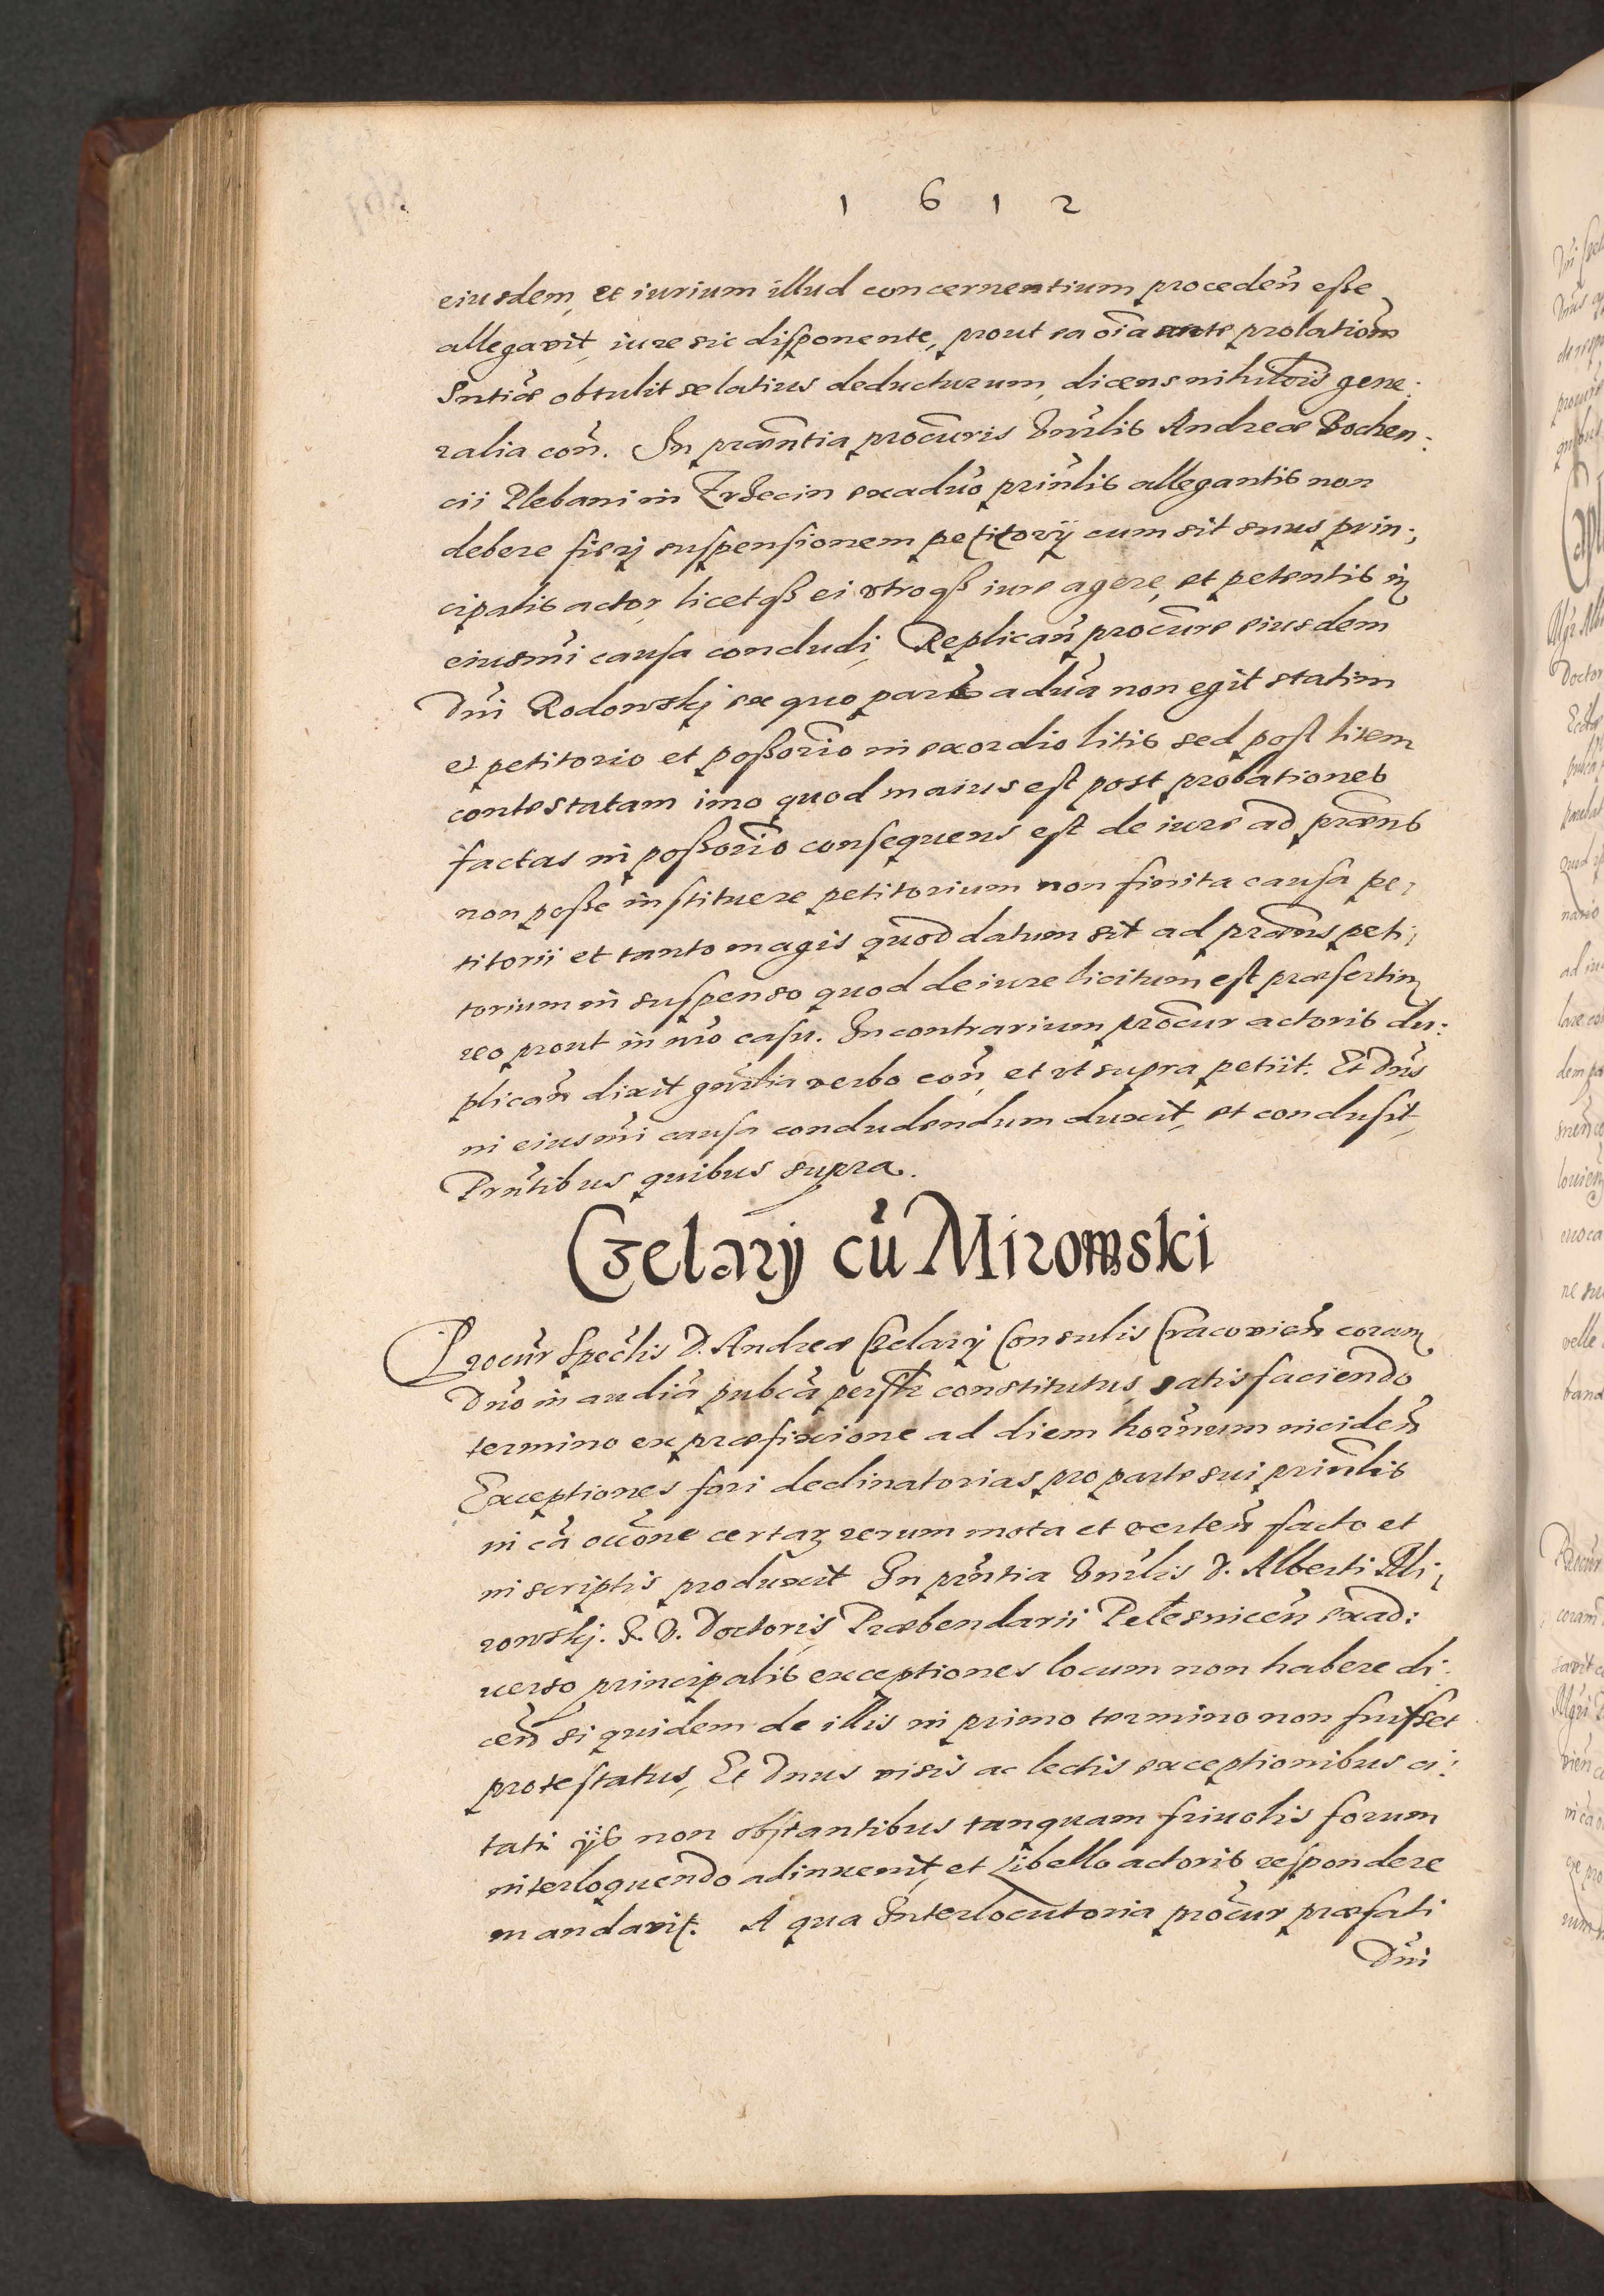 1 6 1 2
eiusdem, et iurium illud concernentium proceden̄ eſſe
allegavit, iure sic diſponente, prout ea oīa ante prolationē
Sntiæ obtulit se latius deducturum, dicens nihilois gene:
ralia con̄. In præntia procuris Vnrlis Andreæ Bochen:
cii Plebani in exaduo prinlis allegantis non
debere fierj suſpenſionem petitorÿ cum sit snus prin:
cipalis actor, licetqß ei vtroqß iure agere, et petentis in
eiusmi cauſa concludi, Replican̄ procure eiusdem
Dni Rodowskj ex quo pars adūa non egit statim
et petitorio et poßorio in exordio litis sed poſt litem
contestatam imo quod maius eſt post probationes
factas in poßorio conſequens eſt de iure ad præns
non poſſe inſtituere petitorium non finita cauſa pe:
titorii et tanto magis quod datum sit ad præns peti:
torium in suſpenso quod de iure licitum eſt præſertim
reo prout in nro caſu. In contrarium procur actoris du:
plican̄ dixit gnrlia verbo con̄, et vt supra petiit. Et Dns
in eiusmi cauſa concludendum duxit, et concluſit,
Prntibus quibus supra.
Czelarÿ cū Mirowski
Procur Spectlis D. Andreæ Czelarÿ Consulis Cracovien̄ coram
Dno in audiā pubcā perſtr constitutus, satisfaciendo
termino ex præfixione ad diem hornum inciden̄
Exceptiones fori declinatorias pro parte sui prinlis
in cā occone certaꝝ rerum mota et verten̄ facto et
in scriptis produxit In prntia Vnrlis D. Alberti Mi:
rowskj. J. V. Doctoris Præbendarii Pelesnicen̄ exad:
uerso principalis exceptiones locum non habere di:
cen̄ si quidem de illis in primo termino non fuiſſet
proteſtatus, Et Dnus visis ac lectis exceptionibus ci:
tati ijs non obſtantibus tanquam friuolis forum
interloquendo adinuenit, et Libello actoris reſpondere
mandavit. A qua Interlocutoria procur præfati
Dni